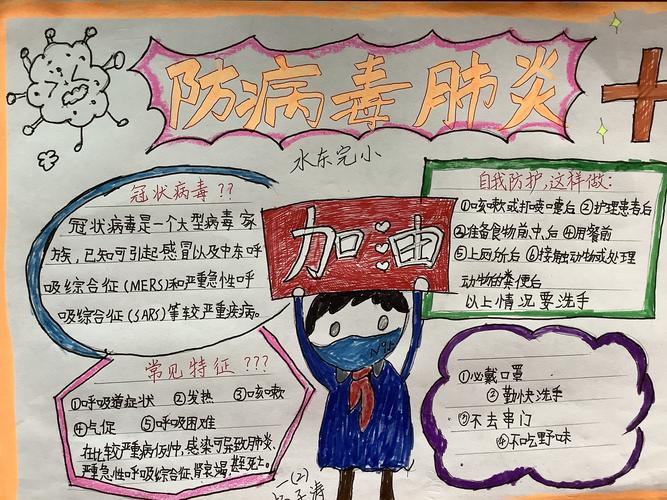 防病毒肺炎
水东完小
冠状病毒??
冠状病毒是一个大型病毒家
族,已知可引起感冒以及中东呼
吸综合征(MERS)和严重急性呼
吸综合征(SARS)等较严重疾病。
加油
N95
自我防护,这样做:
①咳嗽或打喷嚏后 ②护理患者后
③准备食物前,中,后 ④用餐前
⑤上厕所后 ⑥接触动物或处理
动物的粪便后
以上情况要洗手
常见特征???
①呼吸道症状 ②发热 ③咳嗽
④气促 ⑤呼吸困难
在比较严重病例中,感染可导致肺炎、
严重急性呼吸综合征、肾衰竭、甚至死亡。
①必戴口罩
③勤快洗手
②不去串门
④不吃野味
一(2)
涛